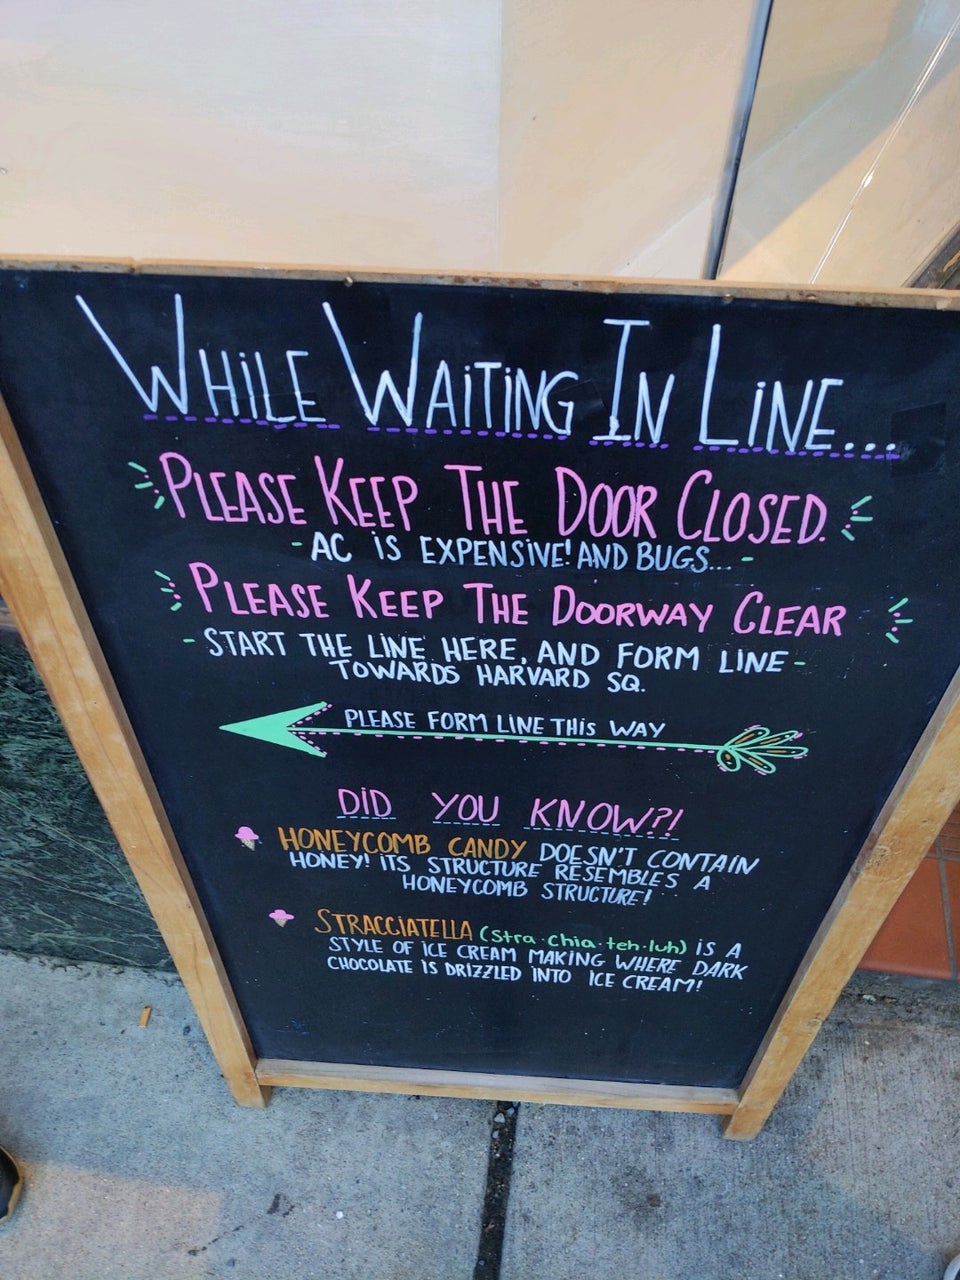 WHILE WAITING IN LINE...
PLEASE KEEP THE DOOR CLOSED.
- AC IS EXPENSIVE! AND BUGS... -
PLEASE KEEP THE DOORWAY CLEAR
- START THE LINE HERE, AND FORM LINE -
TOWARDS HARVARD SQ.
PLEASE FORM LINE THIS WAY
DID YOU KNOW?!
HONEYCOMB CANDY DOESN'T CONTAIN
HONEY! ITS STRUCTURE RESEMBLES A
HONEYCOMB STRUCTURE!
STRACCIATELLA (Stra·chia·teh·luh) IS A
STYLE OF ICE CREAM MAKING WHERE DARK
CHOCOLATE IS DRIZZLED INTO ICE CREAM!